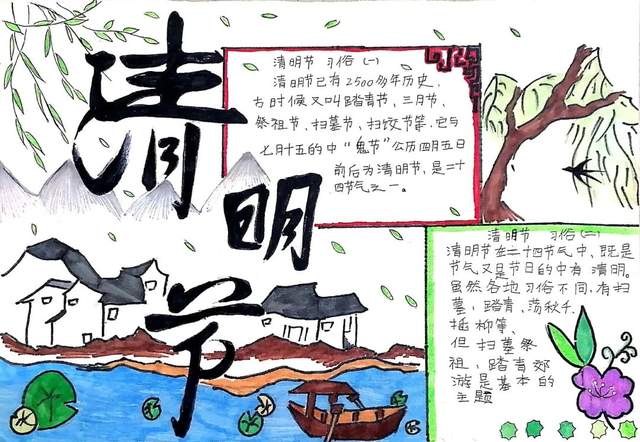 清明节
清明节 习俗(一)
清明节已有2500多年历史,
古时候又叫踏青节、三月节、
祭祖节、扫墓节、扫坟节等.它与
七月十五的中"鬼节"公历四月五日
前后为清明节,是二十
四节气之一。
清明节 习俗(二)
清明节在二十四节气中、既是
节气又是节日的中有 清明。
虽然各地习俗不同,有扫
墓,踏青,荡秋千,
插柳等、
但 扫墓祭
祖,踏青郊
游是基本的
主题